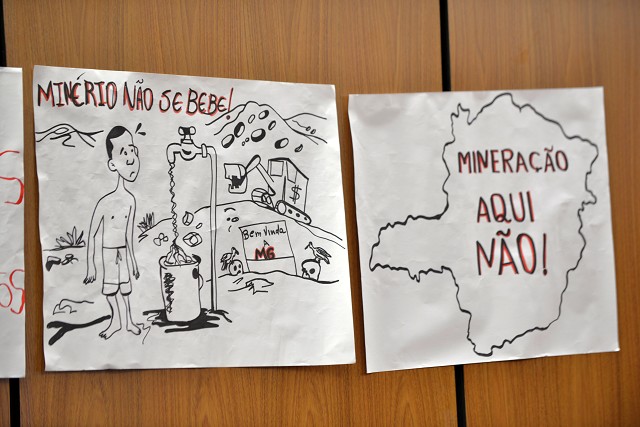 S
os
MINÉRIO NÃO SE BEBE!
$
Bem Vinda
MG
MINERAÇÃO
AQUI
NÃO!